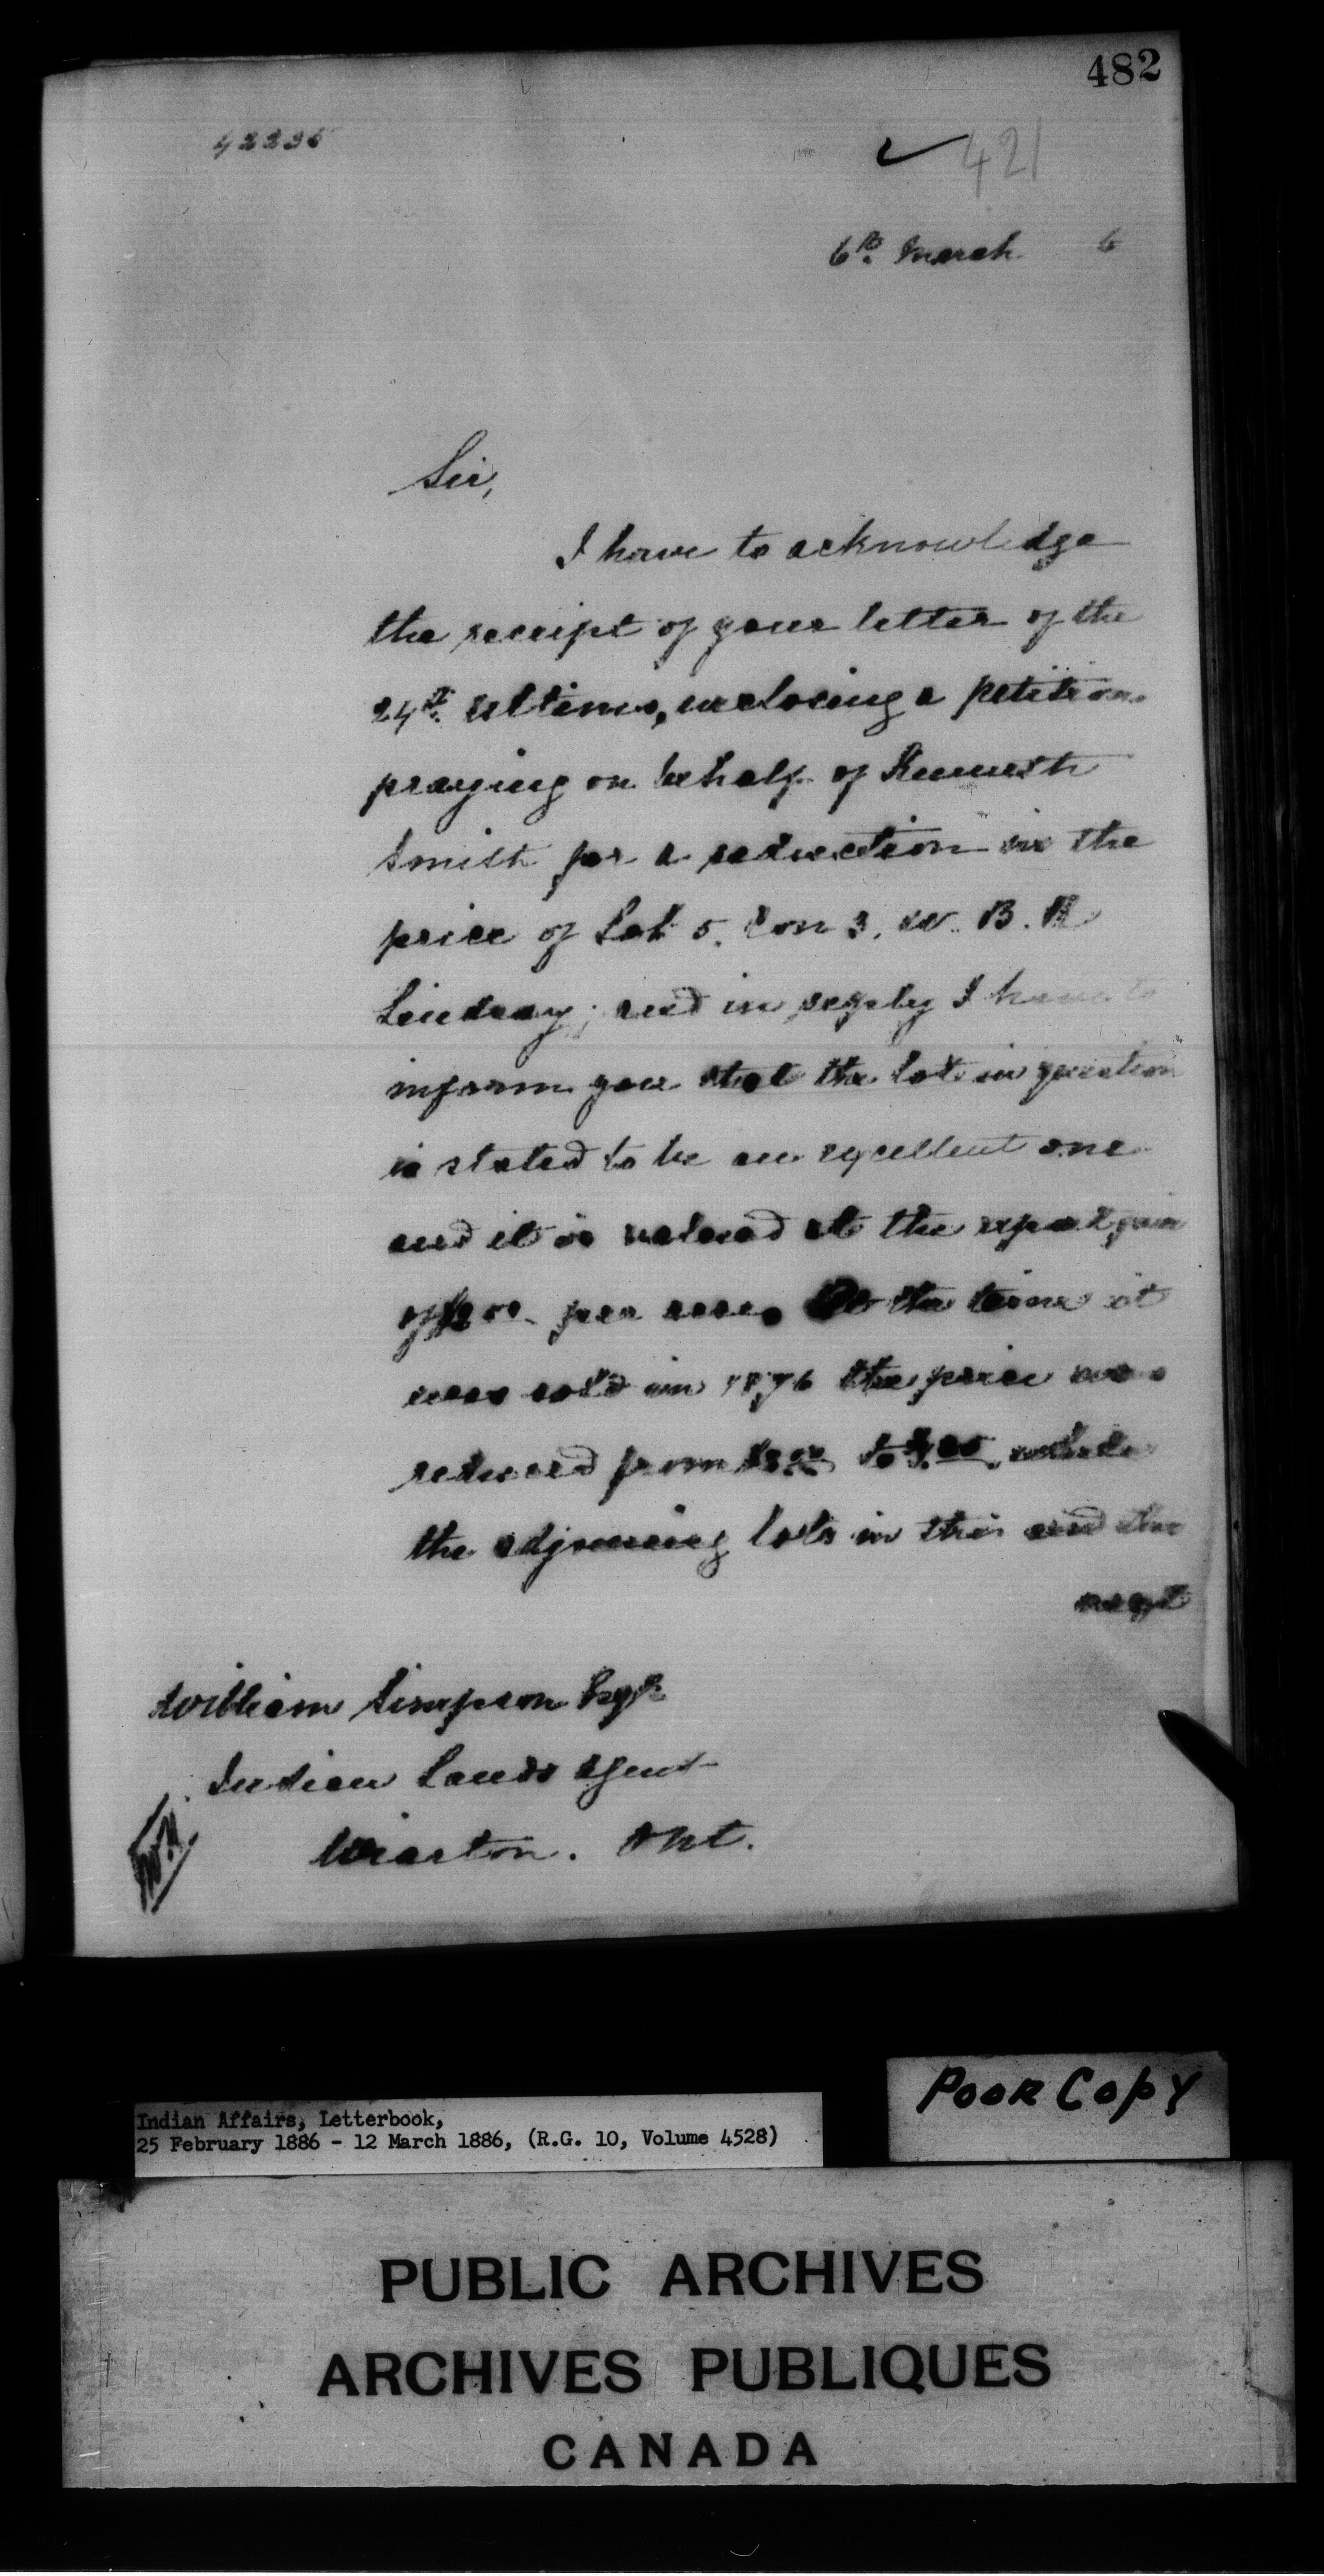 482
42236
421
6th March 6
Sir,
I have to acknowledge
the receipt of your letter of the
24th ultimo, enclosing a petition
praying on behalf of Kenneth
Smith for a reduction in the
price of Lot 5. Con 3. W. B. R
Lindsay; and in reply I have to
inform you that the lot in question
is stated to be an excellent one
and it is valued at the
of per acre, At the time it
was sold in 1876 the price was
reduced from to while
the adjoining lots in this and the
next
William Simpson Esqr
Indian Lands Agent
Wiarton. Ont.
Poor Copy
Indian Affairs, Letterbook,
25 February 1886 - 12 March 1886, (R.G. 10, Volume 4528)
PUBLIC ARCHIVES
ARCHIVES PUBLIQUES
CANADA